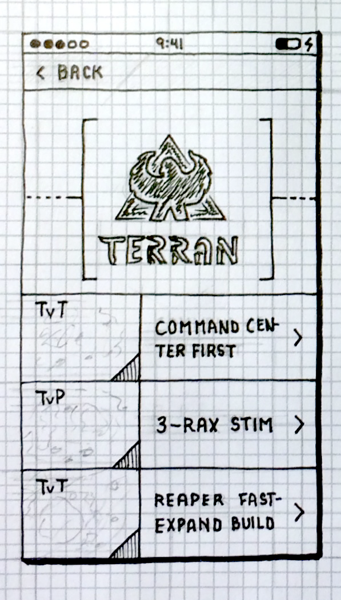 9:41
< BACK
TERRAN
TvT
COMMAND CEN-
TER FIRST
TvP
3-RAX STIM
TvT
REAPER FAST-
EXPAND BUILD